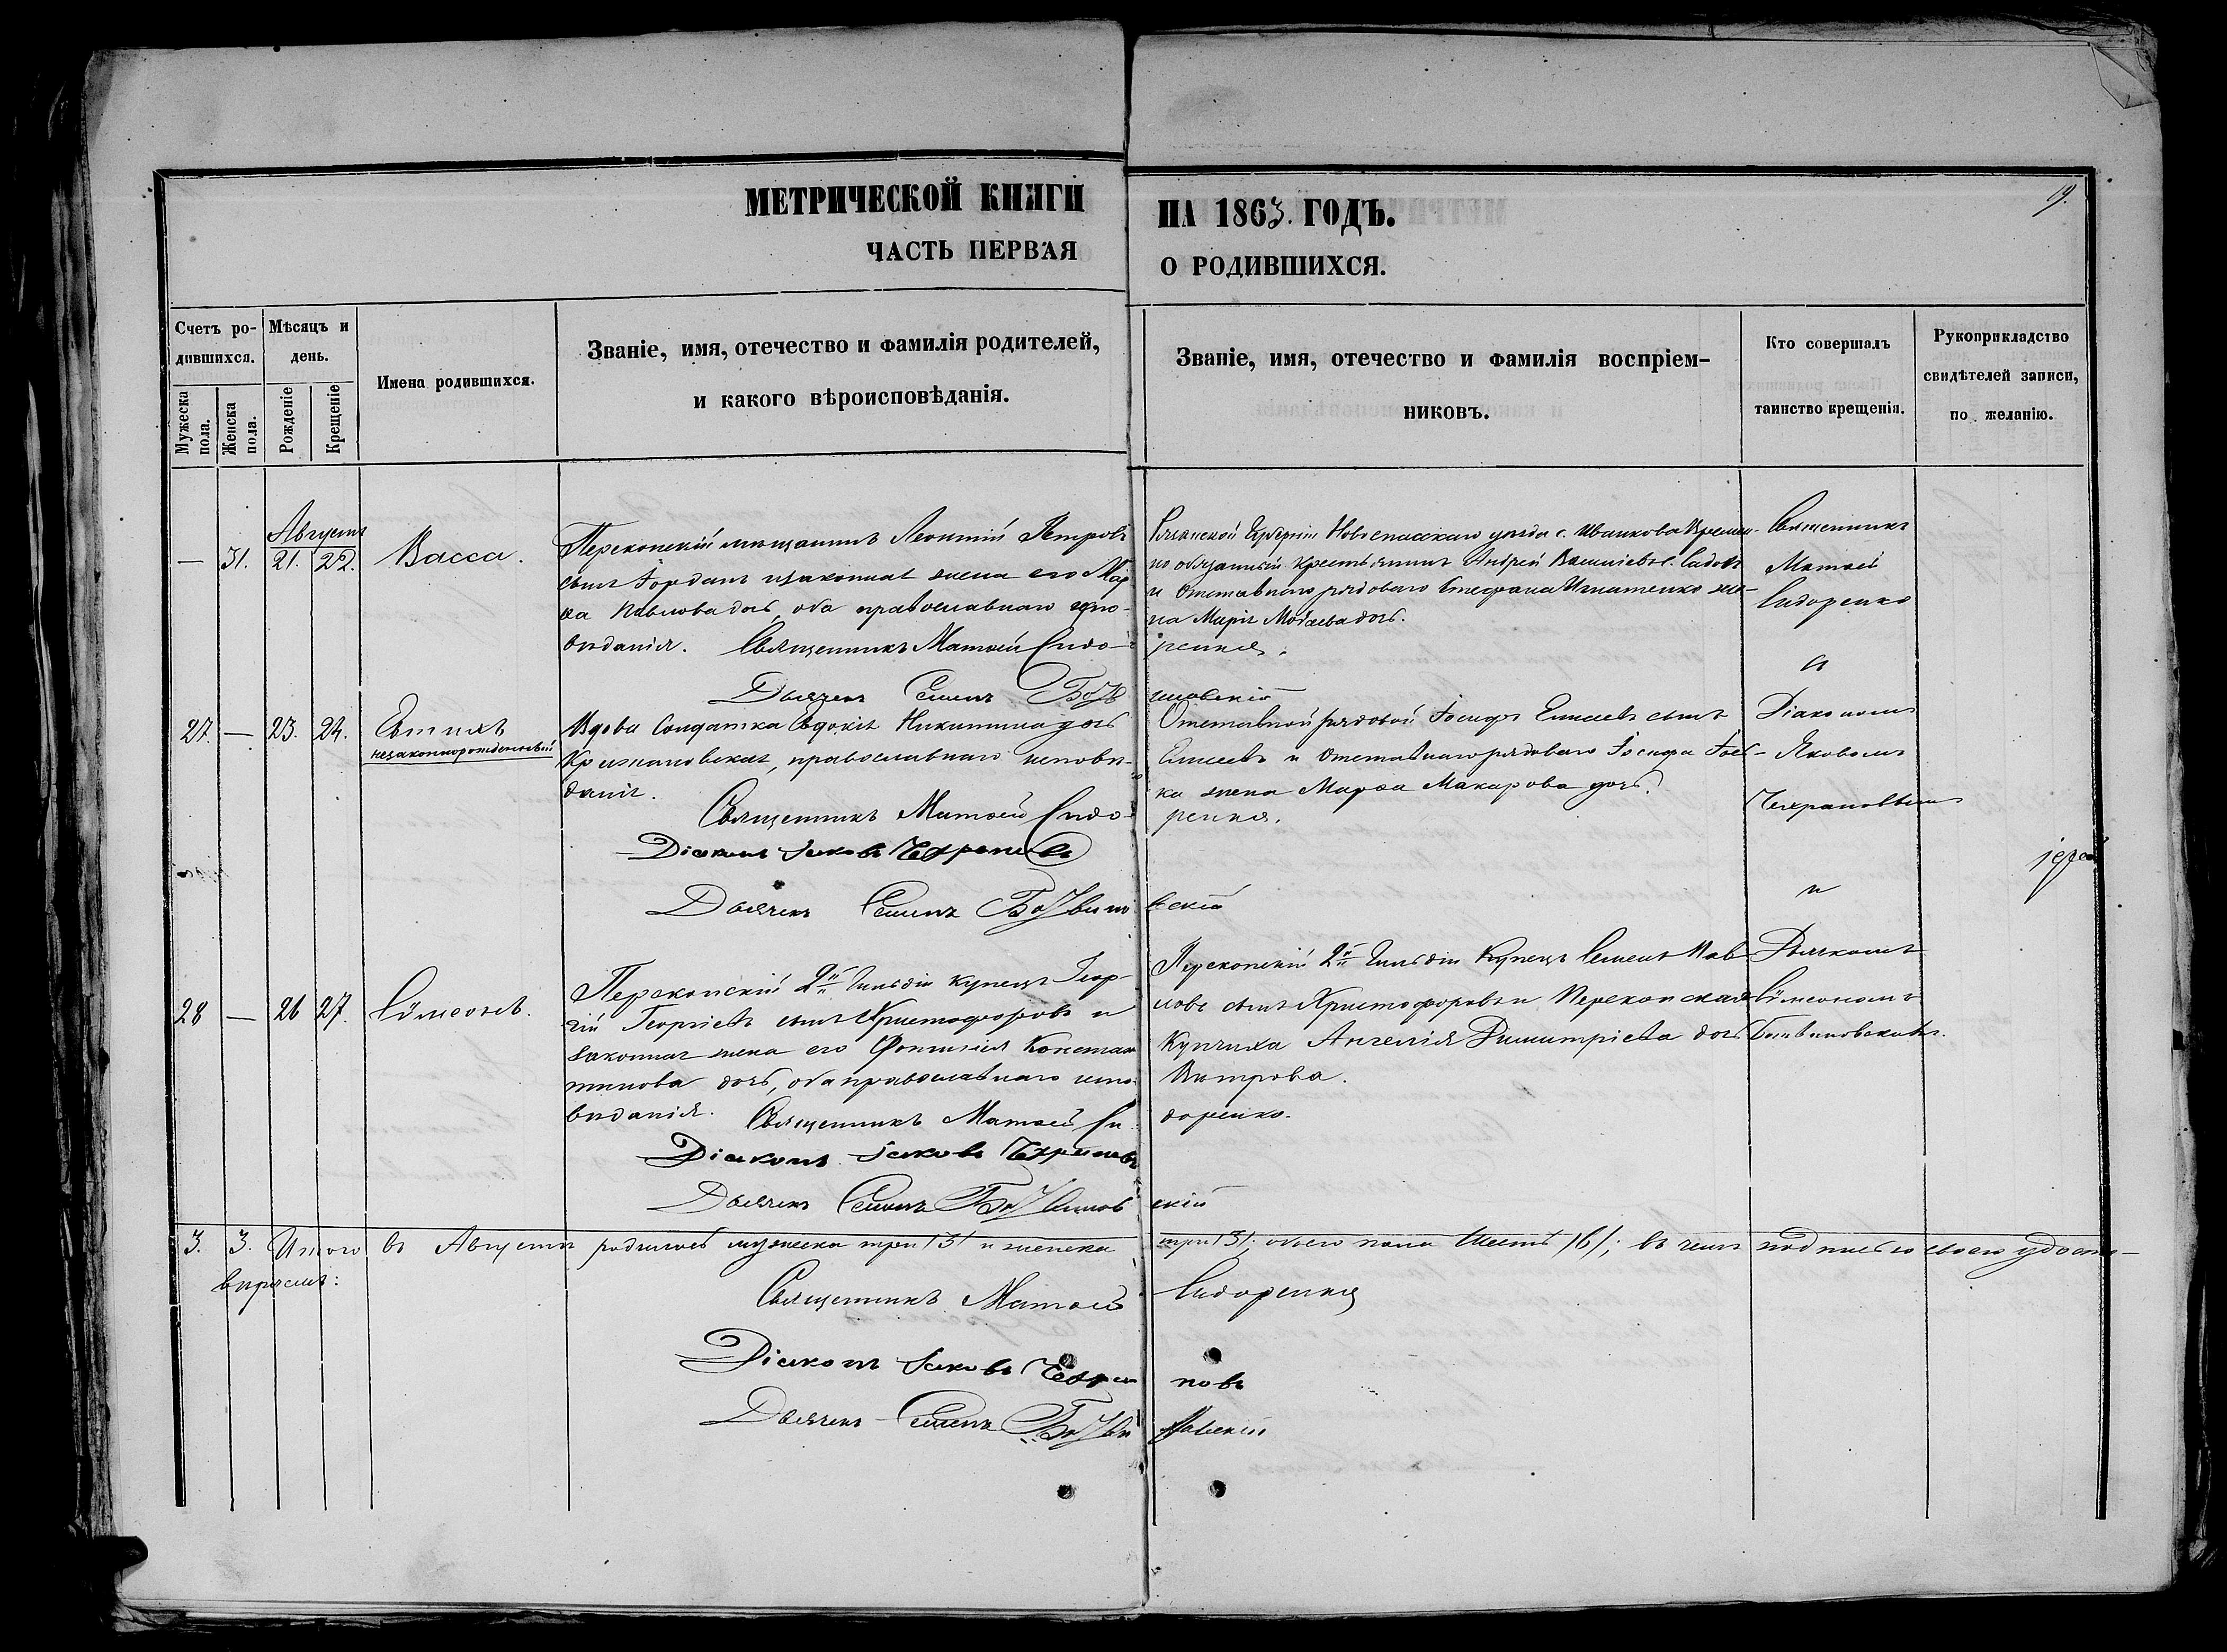 19.
МЕТРИЧЕСКОЙ КНИГИ НА 1863. ГОДЪ.
ЧАСТЬ ПЕРВАЯ О РОДИВШИХСЯ.
Счетъ ро-
дившихся.
Мужеска пола.
Женска пола.
Мѣсяцъ и
день.
Рожденіе
Крещеніе
Имена родившихся.
Званіе, имя, отечество и фамилія родителей,
и какого вѣроисповѣданія.
Званіе, имя, отечество и фамилія воспріем-
никовъ.
Кто совершалъ
таинство крещенія.
Рукоприкладство
свидѣтелей записи,
по желанію.
Августъ
— 31. 21. 22. Васса.
Перекопскій мѣщанинъ Леонтій Петровъ
сынъ Іорданъ и законная жена его Мар
ѳа Павлова дочь, оба православнаго
вѣданія. Священникъ Матѳей Сидо-
ренко.
Дьячекъ Семенъ
Губерніи Новоспасскаго уѣзда с. Иванкова Времен-
но обязанный крестьянинъ Андрей Василіевъ с.
и отставнаго рядоваго Стефана Игнатенко же-
на Марія дочь.
Священникъ
Матѳей
Сидоренко
и
27. — 23. 24. Евтихъ
незаконнорожденный
Вдова Солдатка Евдокія Никитина дочь
православнаго исповѣ-
данія.
Священникъ Матѳей Сидо-
ренко.
Діаконъ Іаковъ Чехрановъ
Дьячекъ Семенъ
Отставной рядовой Іосифъ Елисеевъ сынъ
Елисеевъ и отставнаго рядоваго Іосифа
ка жена Марѳа Макарова дочь.
Діакономъ
Яковомъ
Чехрановымъ
и
28 — 26 27. Сѵмеонъ.
Перекопскій 2й гильдіи купецъ Геор-
гій Георгіевъ сынъ Христофоровъ и
законная жена его Константи-
нова дочь, оба православнаго испо-
вѣданія. Священникъ Матѳей Си
доренко.
Діаконъ Іаковъ Чехрановъ
Дьячекъ Семенъ
Перекопскій 2й гильдіи Купецъ Семенъ Пав
ловъ сынъ Христофоровъ и Перекопская
Купчиха Ангелія Димитріева дочь
Вѣтрова.
Дьячкомъ
Сѵмеономъ
3. 3. Итого въ Августѣ родилось мужеска три /3/ и женска три /3/, обоего пола Шесть /6/; въ чемъ подписью своею удосто-
вѣряемъ:
Священникъ Матѳей Сидоренко
Діаконъ Іаковъ Чехрановъ
Дьячекъ Семенъ